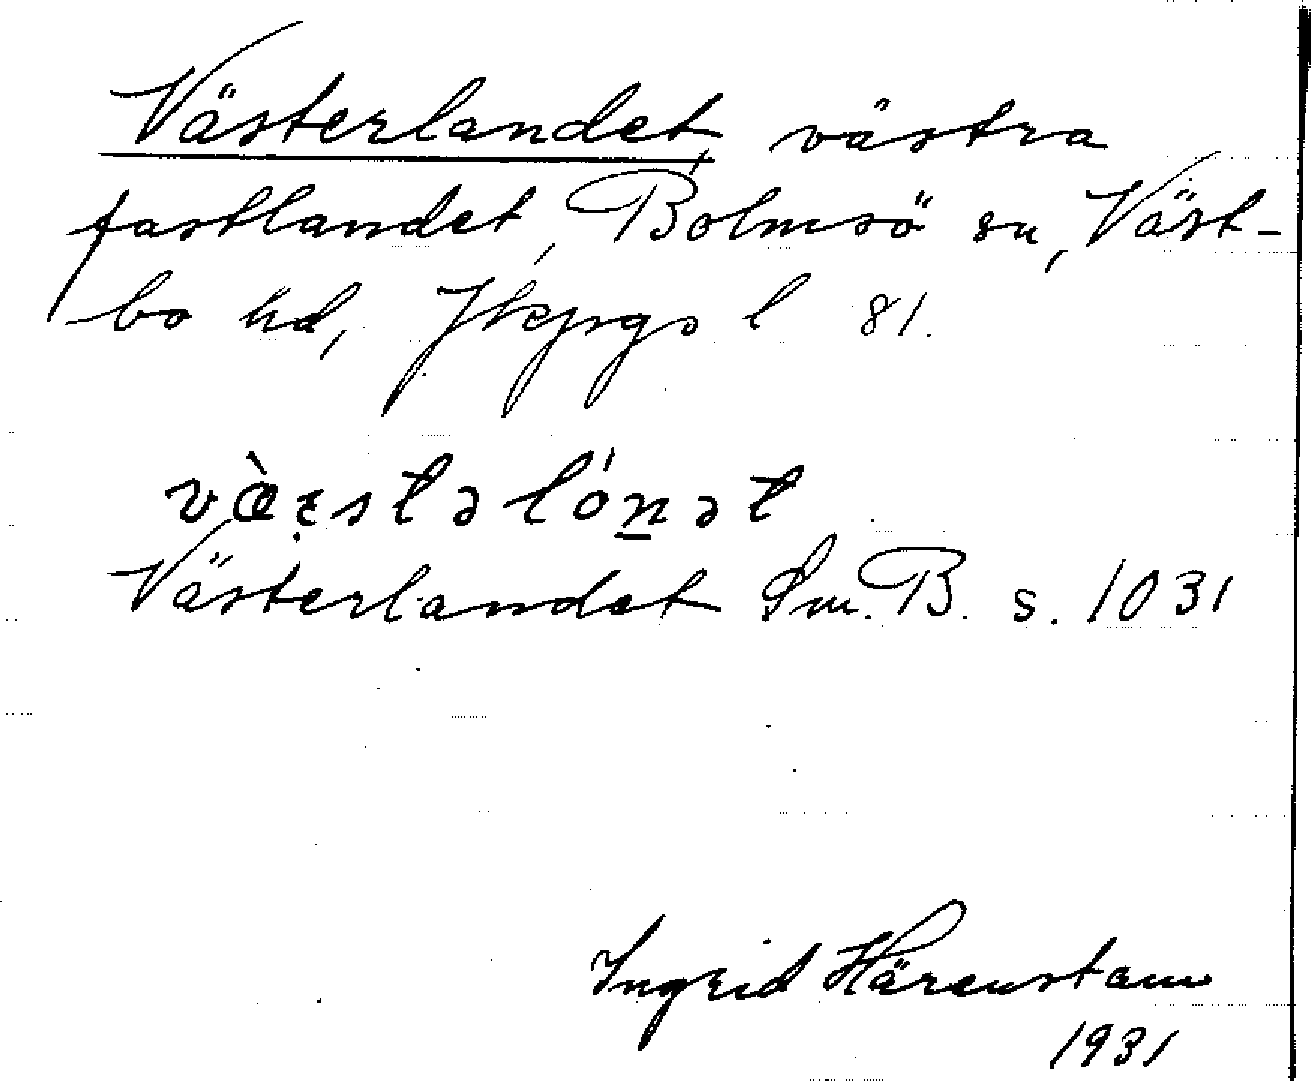 Västerlandet, västra
fastlandet, Bolmsö sn, Väst-
bo hd, Jkpgs l 81.
væ̀stəlónət
Västerlandet Sm. B. s. 1031
Ingrid Härenstam
1931